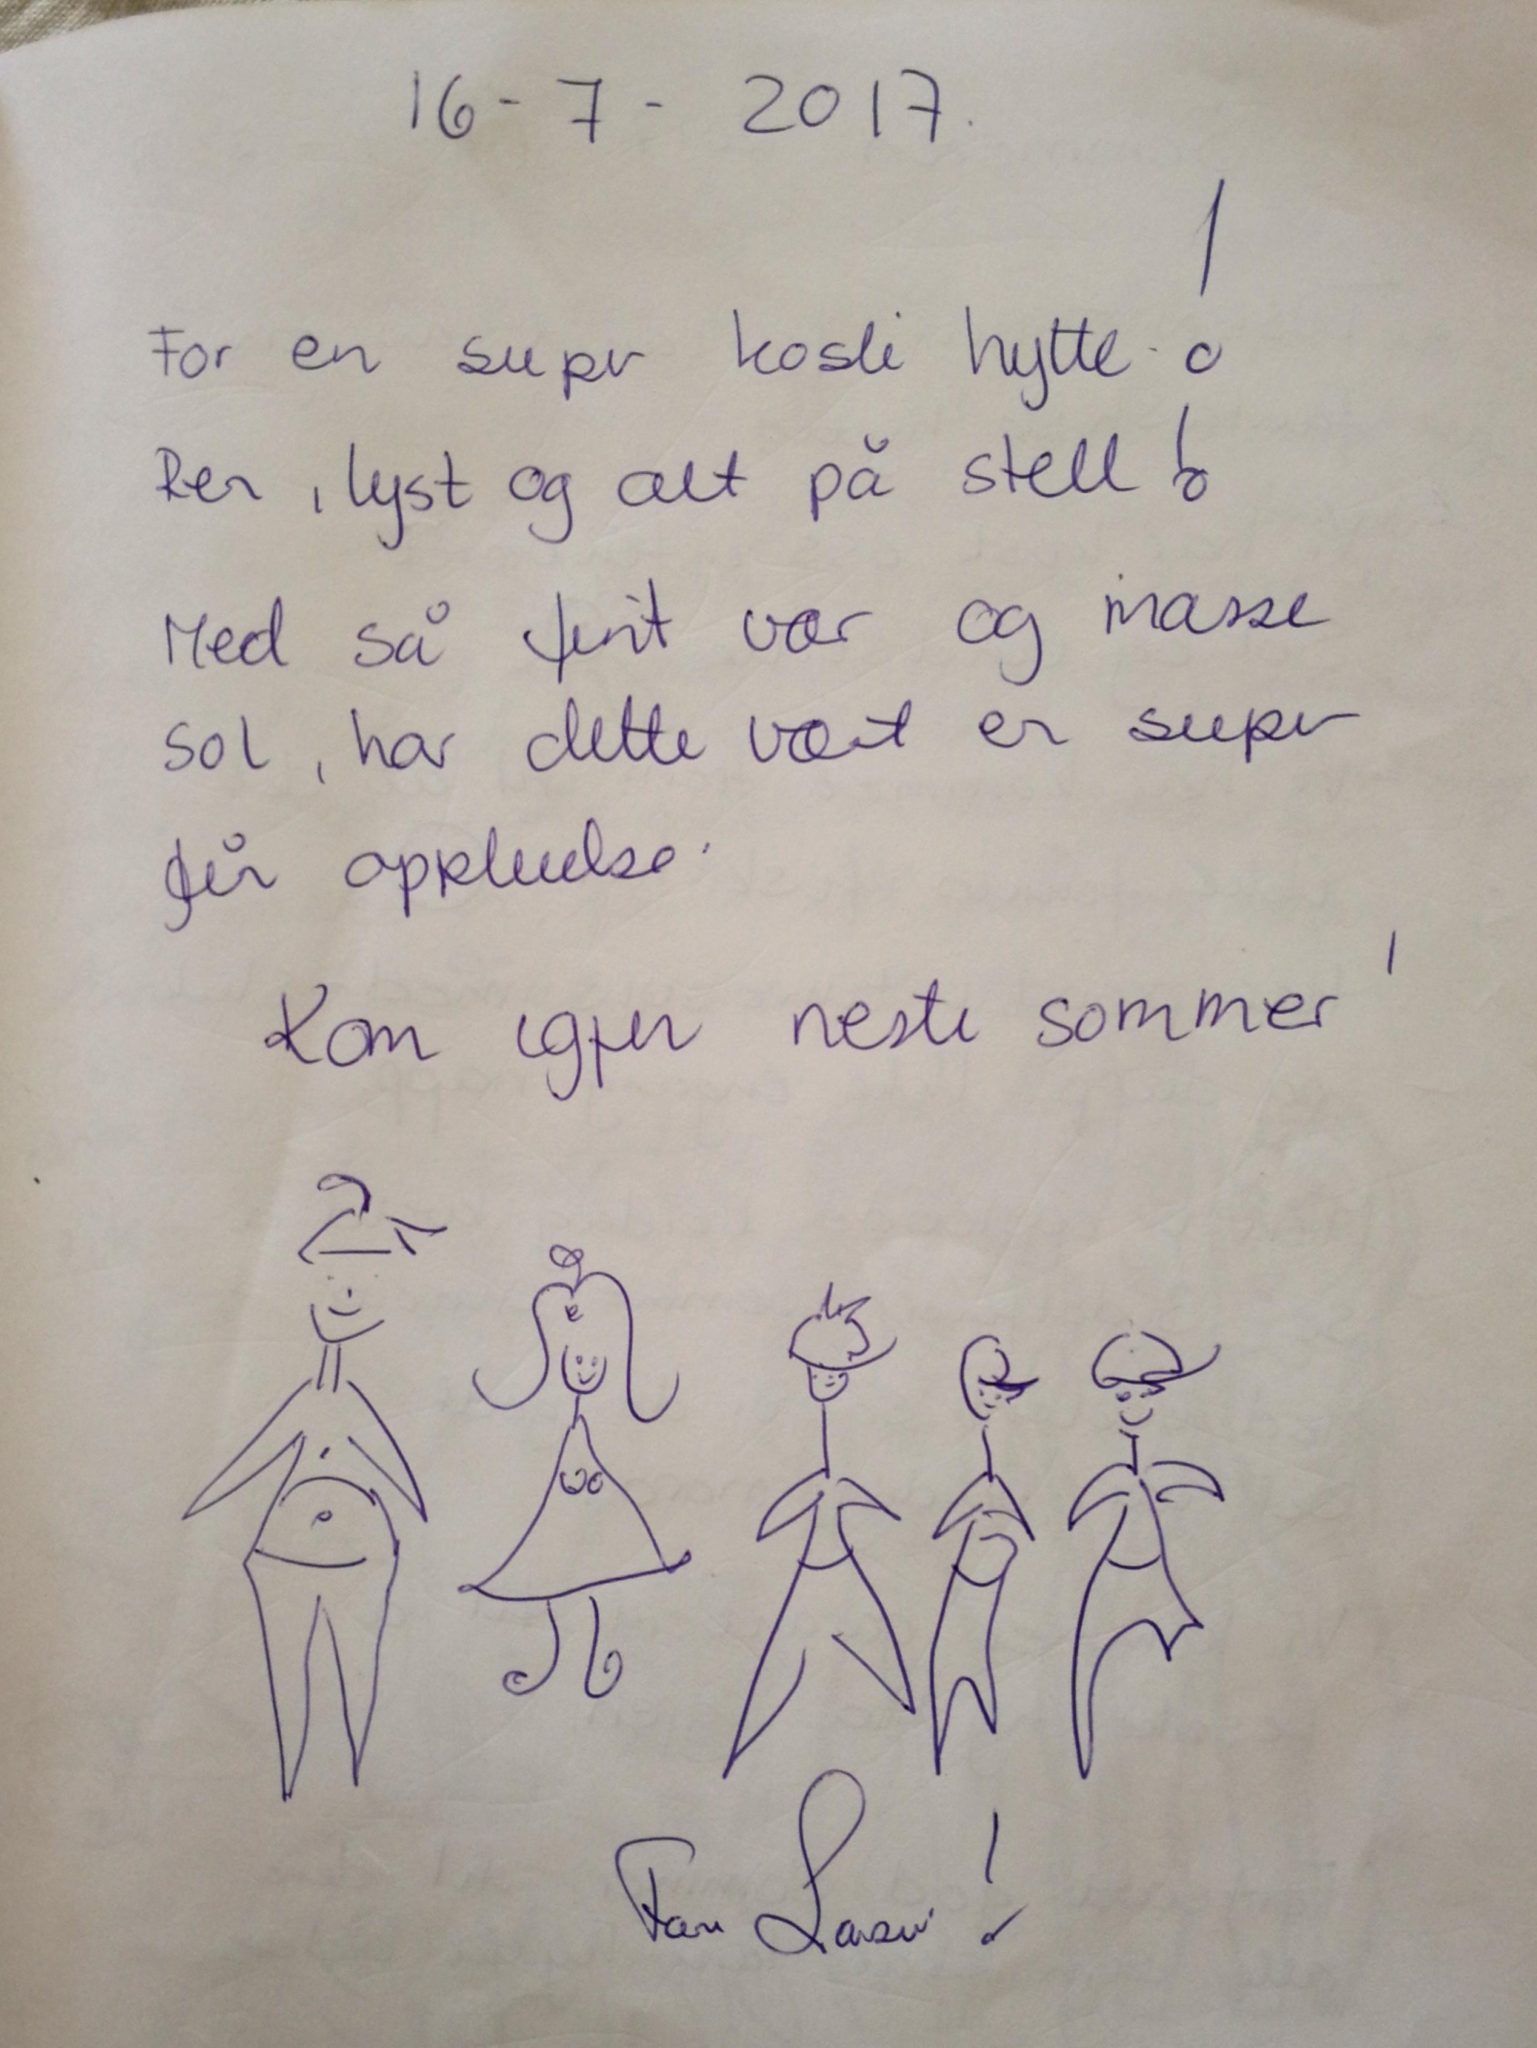 16-7-2017.
For en super kosli hytte!
Ren, lyst og alt på stell!
Med så fint vær og masse
sol, har dette vært en super
fin opplevelse.
Kom igjen neste sommer!
Fam Larsen!